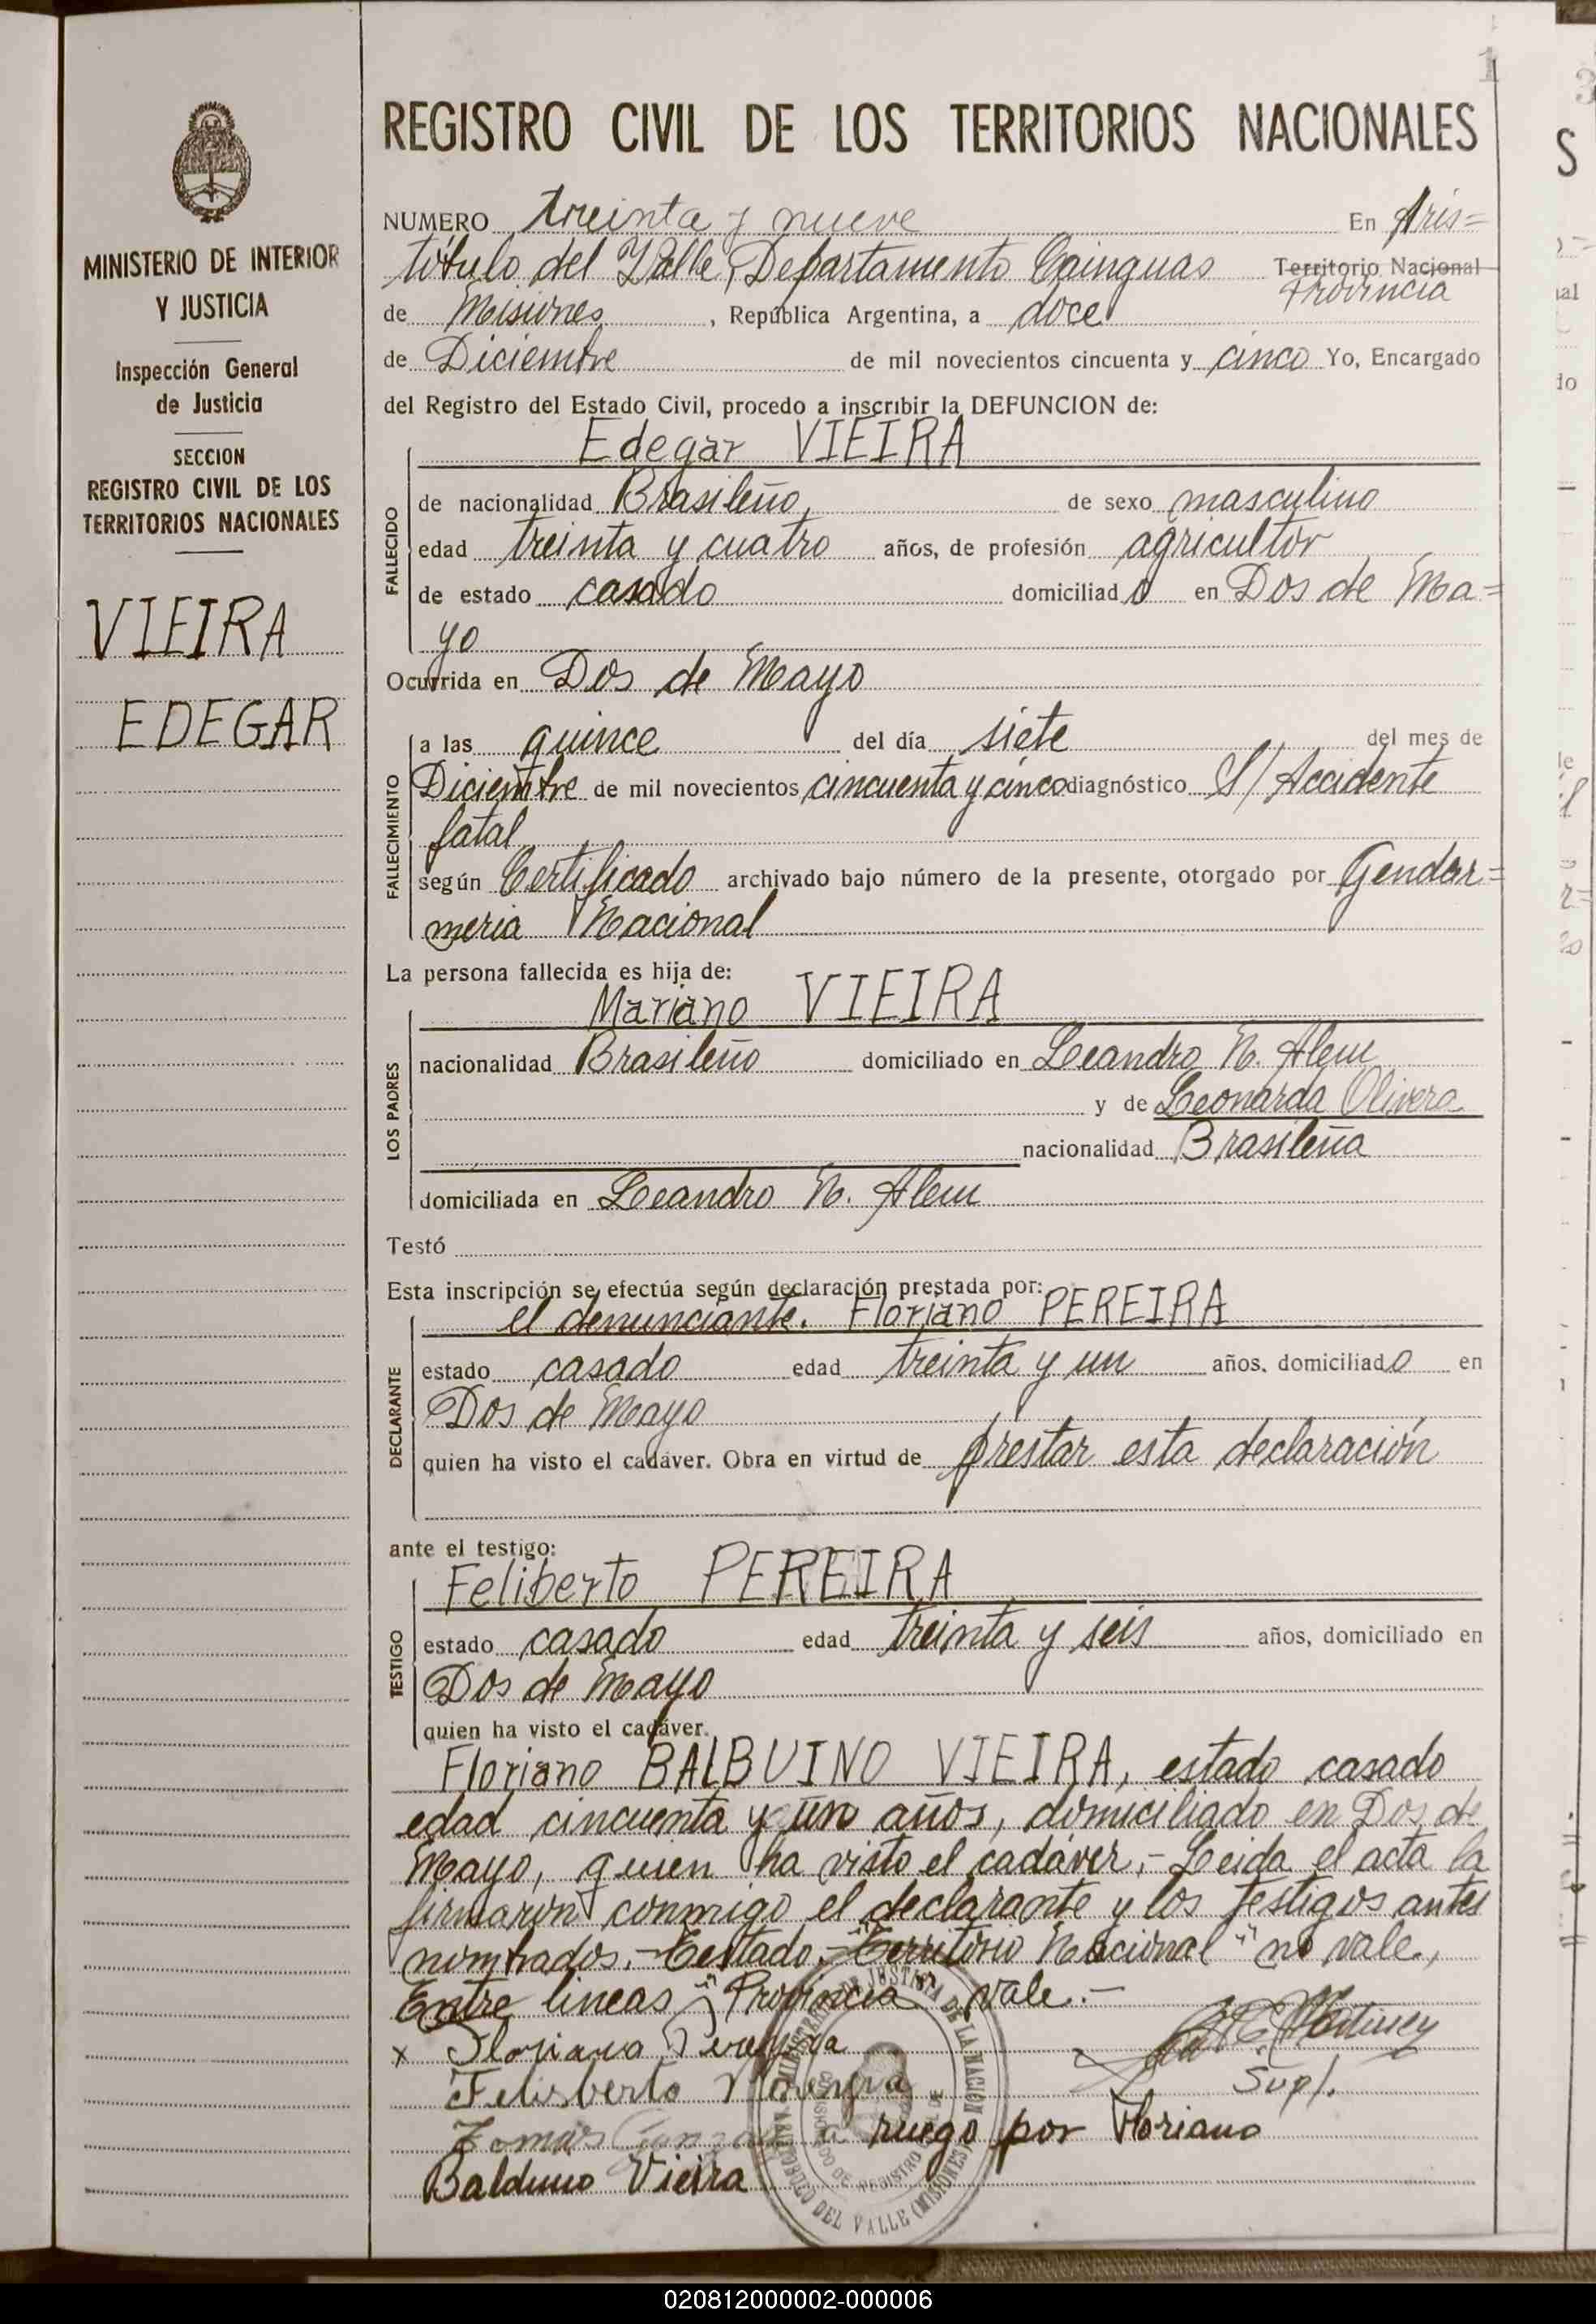 1
REGISTRO CIVIL DE LOS TERRITORIOS NACIONALES
MINISTERIO DE INTERIOR
Y JUSTICIA
Inspección General
de Justicia
SECCION
REGISTRO CIVIL DE LOS
TERRITORIOS NACIONALES
VIEIRA
EDEGAR
NUMERO treinta y nueve En Aris=
tótulo del Valle, Departamento Cainguas Territorio Nacional
Provincia
de Misiones, República Argentina, a doce
de Diciembre de mil novecientos cincuenta y cinco Yo, Encargado
del Registro del Estado Civil, procedo a inscribir la DEFUNCION de:
Edegar VIEIRA
FALLECIDO
de nacionalidad Brasileño, de sexo masculino
edad treinta y cuatro años, de profesión agricultor
de estado casado domiciliado en Dos de Ma=
yo
Ocurrida en Dos de Mayo
FALLECIMIENTO
a las quince del día siete del mes de
Diciembre de mil novecientos cincuenta y cinco diagnóstico S/ Accidente
fatal
según Certificado archivado bajo número de la presente, otorgado por Gendar=
meria Nacional
La persona fallecida es hija de:
Mariano VIEIRA
LOS PADRES
nacionalidad Brasileño domiciliado en Leandro N. Alem
y de Leonarda Olivera
nacionalidad Brasileña
domiciliada en Leandro N. Alem
Testó
Esta inscripción se efectúa según declaración prestada por:
el denunciante. Floriano PEREIRA
DECLARANTE
estado casado edad treinta y un años, domiciliado en
Dos de Mayo
quien ha visto el cadáver. Obra en virtud de prestar esta declaración
ante el testigo:
Feliberto PEREIRA
TESTIGO
estado casado edad treinta y seis años, domiciliado en
Dos de Mayo
quien ha visto el cadáver.
Floriano BALBUINO VIEIRA, estado casado
edad cincuenta y un años, domiciliado en Dos de
Mayo, quien ha visto el cadáver.- Leida el acta la
firmaron conmigo el declarante y los testigos antes
nombrados.- Testado:- "Territorio Nacional" no vale,
Entre lineas "Provincia" vale.-
x Floriano Pereira
Supl.
Felisberto
Tomás a ruego por Floriano
Balduino Vieira
MINISTERIO DE JUSTICIA DE LA NACION
ARISTOBULO DEL VALLE (MISIONES)
020812000002-000006